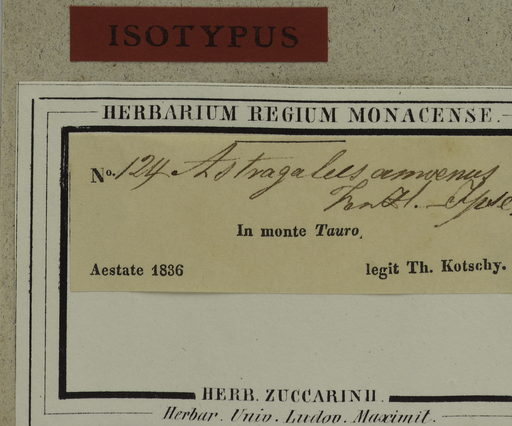 ISOTYPUS
HERBARIUM REGIUM MONACENSE.
No. 124 Astragalus amoenus
Fenzl. - Ipse
In monte Tauro,
Aestate 1836 legit Th. Kotschy.
HERB. ZUCCARINII.
Herbar. Univ. Ludov. Maximil.